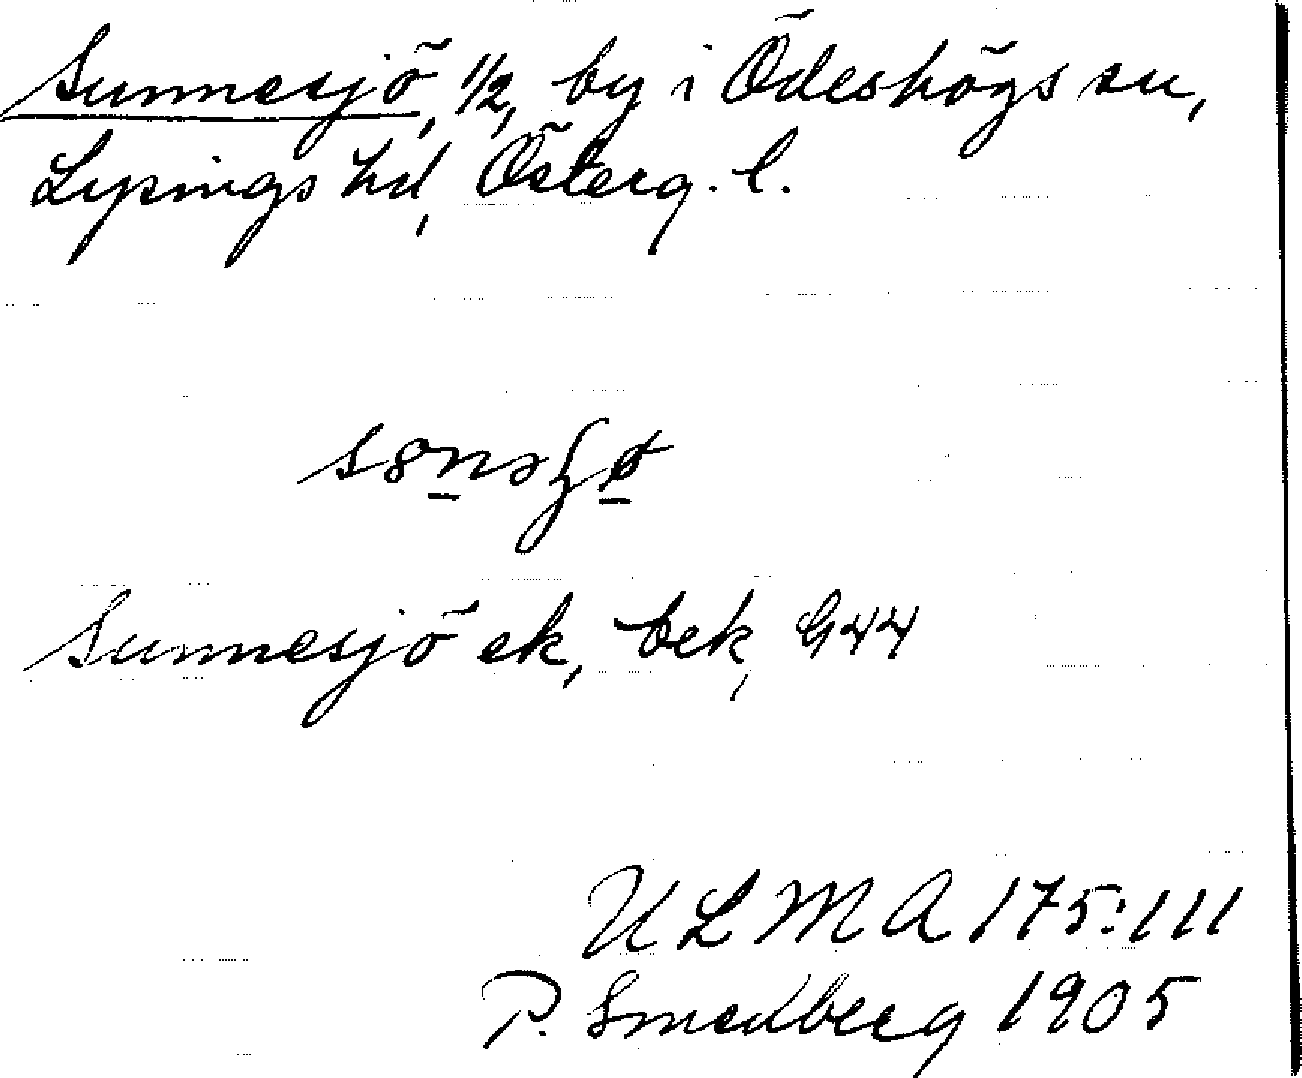 Sunnesjö, 1/2, by i Ödeshögs sn,
Lysings hd, Österg. l.
Sunnesjö ek, bek, G44
ULMA 175:111
P. Smedberg 1905